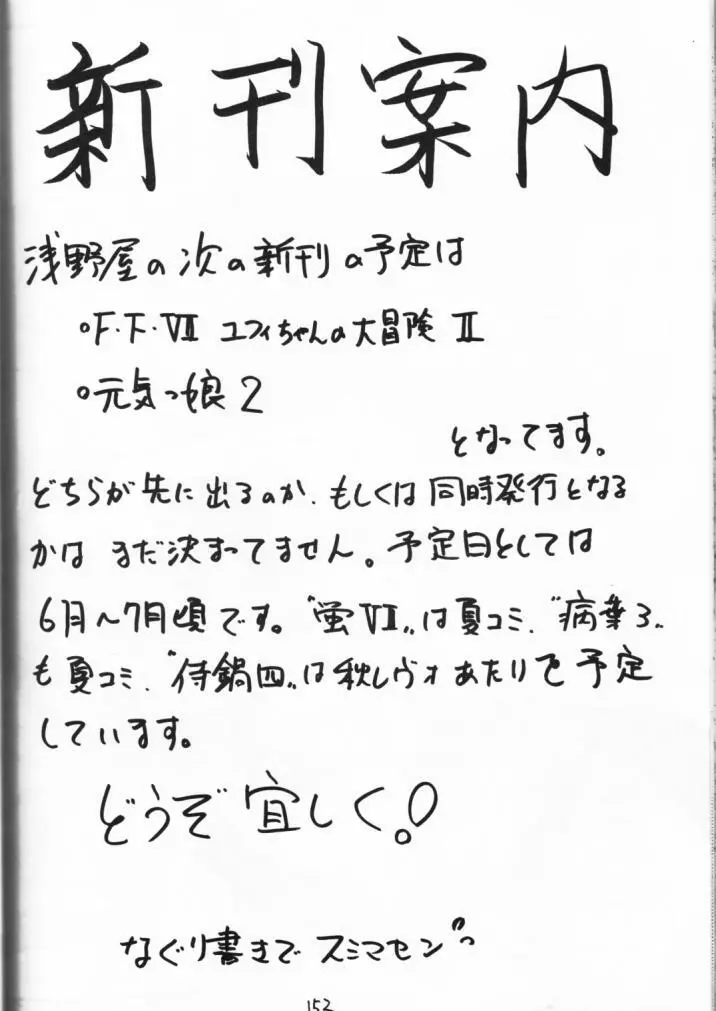 新刊案内
浅野屋の次の新刊の予定は
○F.F.Ⅶ ユフィちゃんの大冒険 Ⅱ
○元気っ娘 2
となってます。
どちらが先に出るのか、もしくは同時発行となる
かは まだ決まってません。予定日としては
6月〜7月頃です。〝蛍Ⅶ〟は夏コミ、〝病葉3〟
も夏コミ、〝侍鍋四〟は秋レヴォあたりで予定
しています。
どうぞ宜しく!
なぐり書きで スミマセン
152